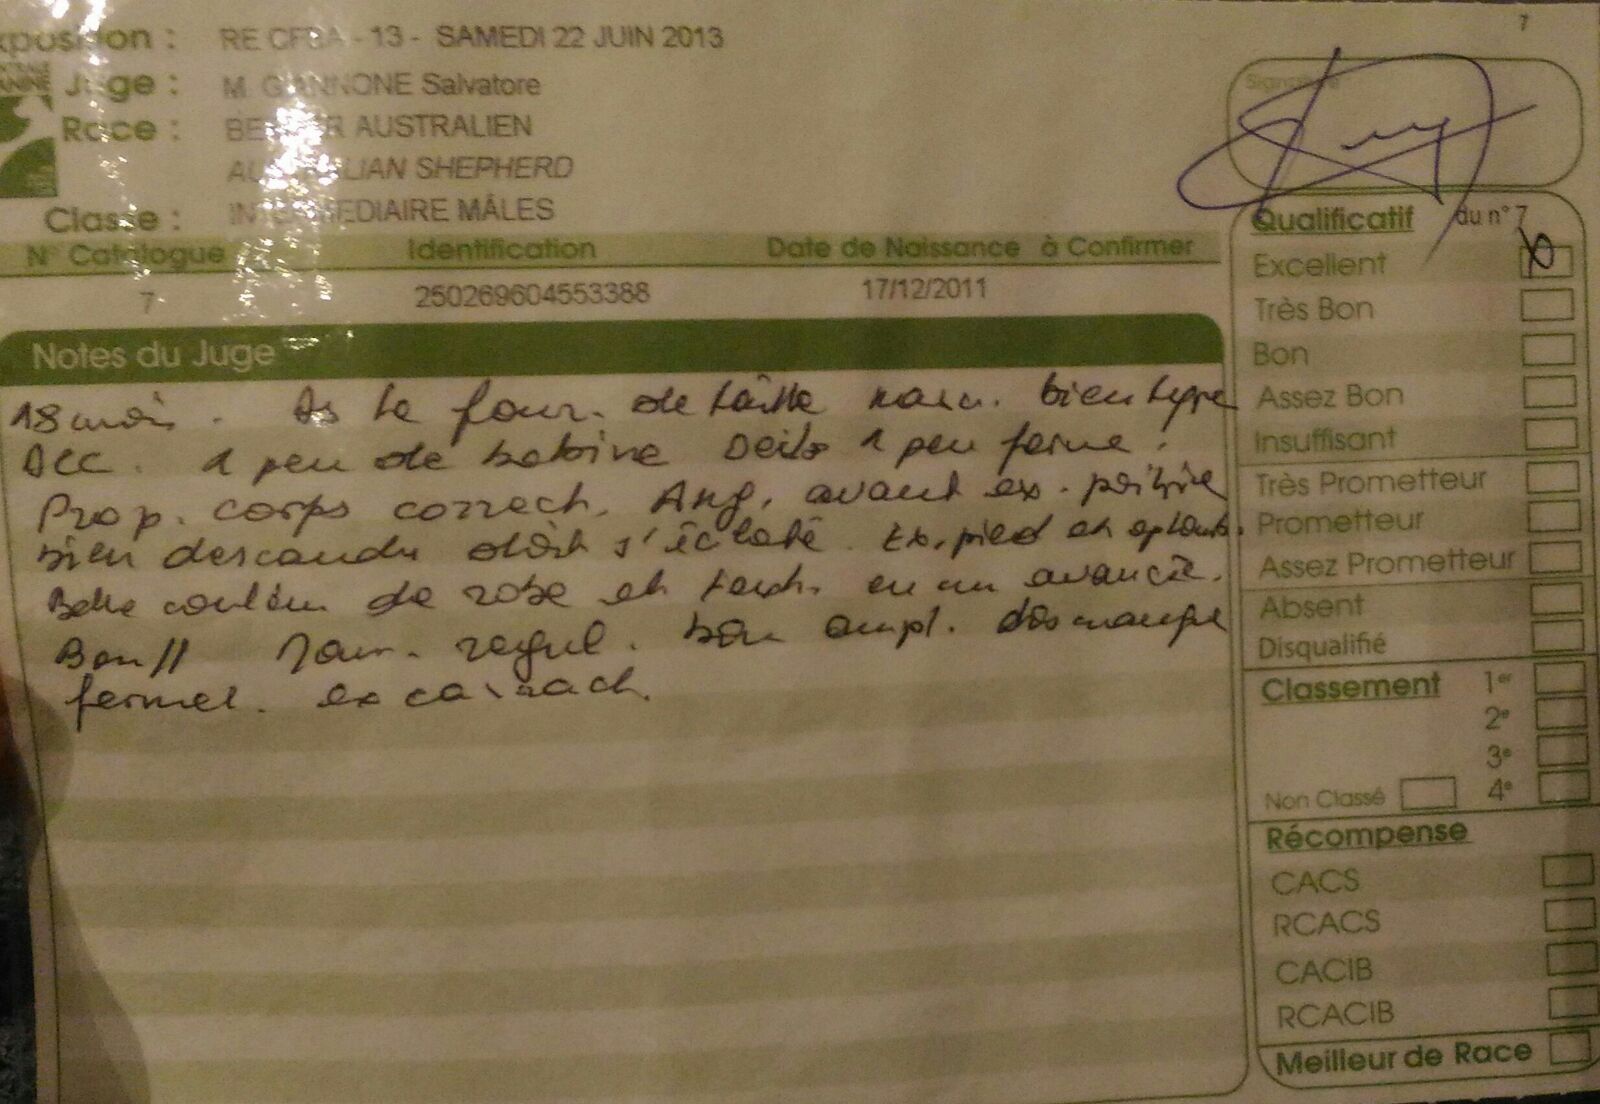 xposition : RE CFBA - 13 - SAMEDI 22 JUIN 2013
7
Juge : M. GIANNONE Salvatore
Race : BERGER AUSTRALIEN
AUSTRALIAN SHEPHERD
Classe : INTERMEDIAIRE MÂLES
Signature
N° Catalogue Identification Date de Naissance à Confirmer
7 250269604553388 17/12/2011
Notes du Juge
18 mois. de taille bien typé
1 peu de babine 1 peu
Prop. corps correct. Ang. avant ex.
bien descendu doit s'éclaté. Ex. pied et
Belle couleur de robe et avancée.
Bon // regul. bon ampl.
fermet. ex
Qualificatif du n° 7
Excellent
Très Bon
Bon
Assez Bon
Insuffisant
Très Prometteur
Prometteur
Assez Prometteur
Absent
Disqualifié
Classement 1er
2e
3e
Non Classé 4e
Récompense
CACS
RCACS
CACIB
RCACIB
Meilleur de Race